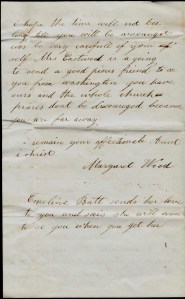 I hope the time will not bee
long till you will be arranged
but be very carefull of your
self Mrs Eastwood is a going
to send a good pious friend to see
you from Washington you have
ours and the whole church
praiers dont be discouraged because
you are far away
I remain your affectionate Aunt
in christ
Margaret Wood
Emeline Batt sends her love
to you and says she will come
to see you when you get her